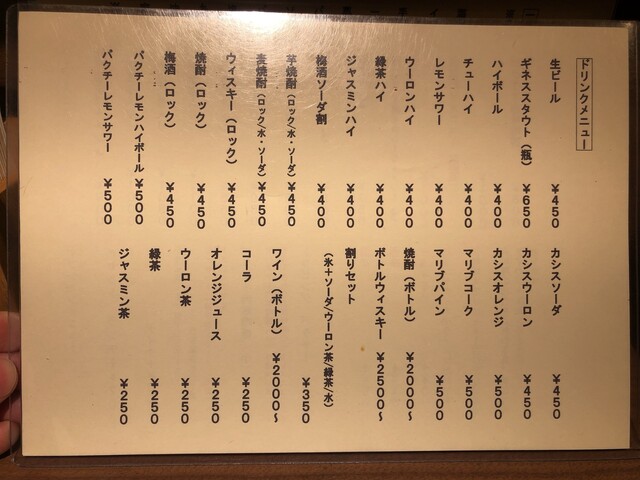 ドリンクメニュー
生ビール ￥450
ギネススタウト（瓶） ￥650
ハイボール ￥400
チューハイ ￥400
レモンサワー ￥400
ウーロンハイ ￥400
緑茶ハイ ￥400
ジャスミンハイ ￥400
梅酒ソーダ割 ￥400
芋焼酎（ロック/水・ソーダ） ￥450
麦焼酎（ロック/水・ソーダ） ￥450
ウィスキー（ロック） ￥450
焼酎（ロック） ￥450
梅酒（ロック） ￥450
パクチーレモンハイボール ￥500
パクチーレモンサワー ￥500
カシスソーダ ￥450
カシスウーロン ￥450
カシスオレンジ ￥500
マリブコーク ￥500
マリブパイン ￥500
焼酎（ボトル） ￥2000～
ボトルウィスキー ￥2500～
割りセット
（氷＋ソーダ/ウーロン茶/緑茶/水）
￥350
ワイン（ボトル） ￥2000～
コーラ ￥250
オレンジジュース ￥250
ウーロン茶 ￥250
緑茶 ￥250
ジャスミン茶 ￥250